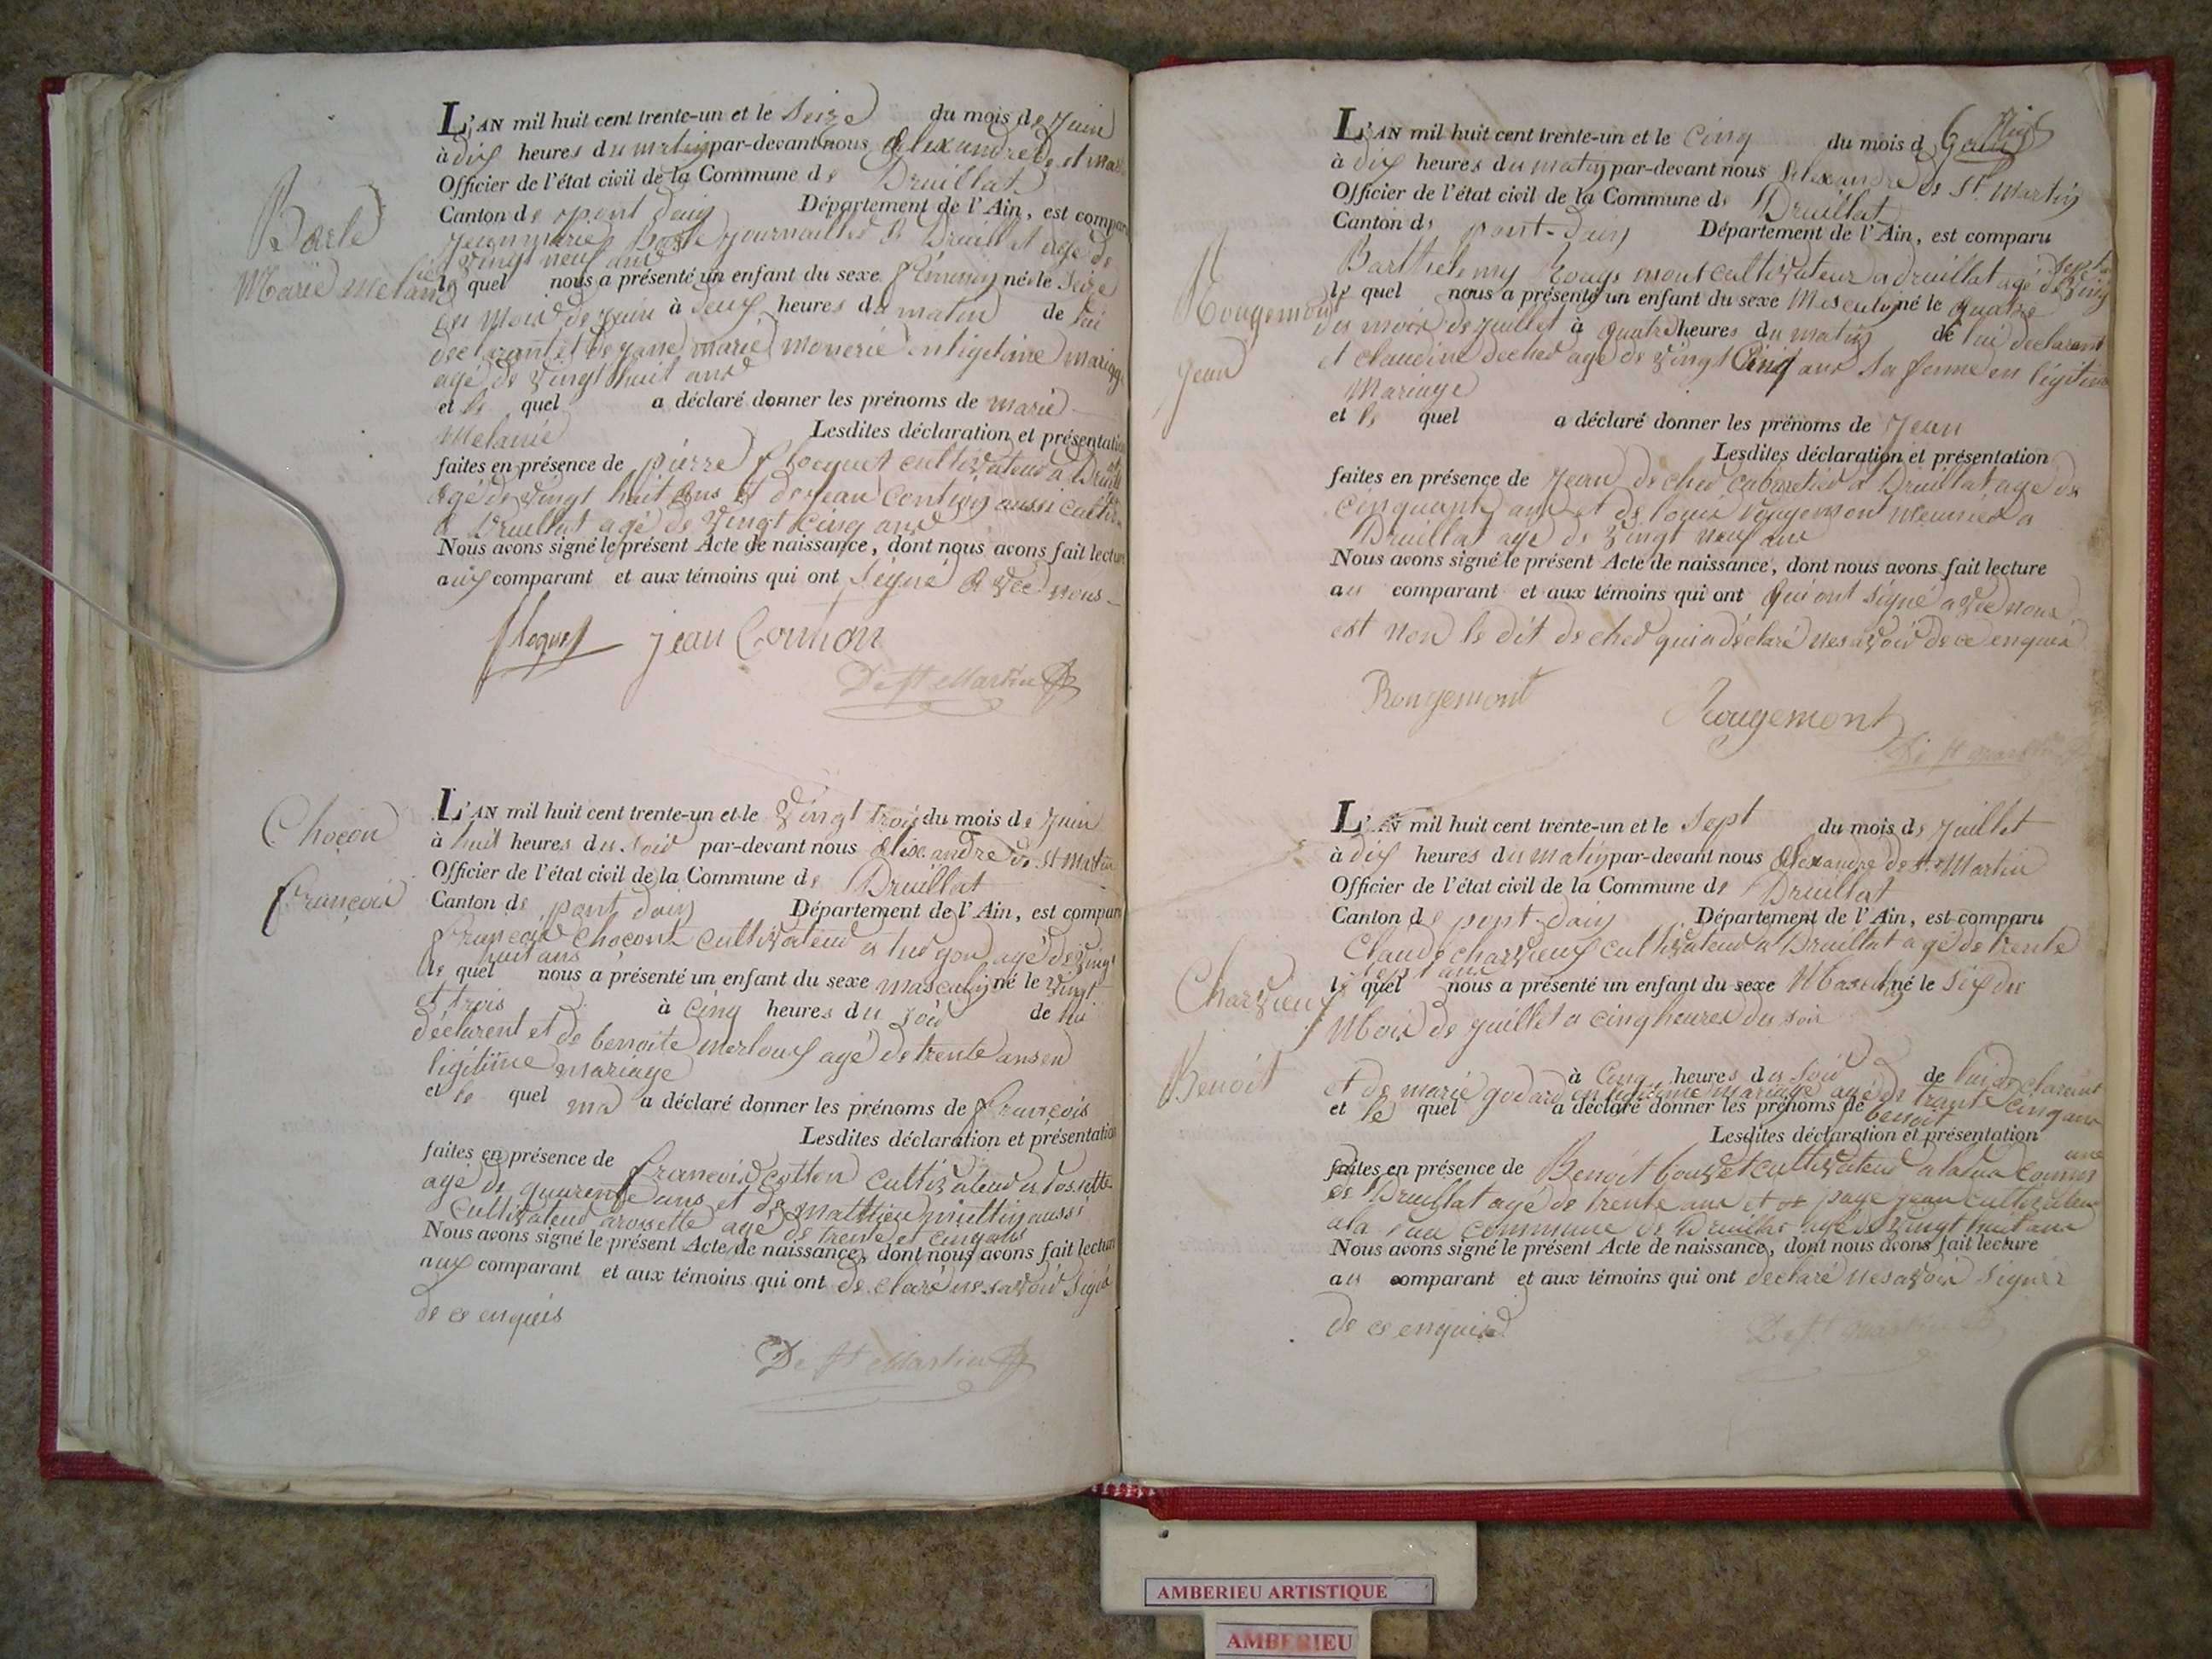 Barle
Marie Melanie
L'AN mil huit cent trente-un et le Seize du mois de Juin
à dix heures du matin par-devant nous Alexandre De st Mar
Officier de l'état civil de la Commune de Druillat
Canton de pont dain Département de l'Ain, est compar
Jeanmarie Barle journaillier a Druillat agé de
vingt neuf ans
le quel nous a présenté un enfant du sexe féminin né le Seize
du Mois de juin à deux heures du matin de lui
declarant et de marie monerie en ligetime mariage
agé de vingt huit ans
et le quel a déclaré donner les prénoms de marie
Melanie Lesdites déclaration et présentation
faites en présence de pierre floquet cultivateur a Druillat
agé de vingt huit ans et de jean aussi cultiv
a Druillat agé de vingt cinq ans
Nous avons signé le présent Acte de naissance, dont nous avons fait lecture
aux comparant et aux témoins qui ont signé avec nous
floquet jean
De st Martin
Chocon
françois
L'AN mil huit cent trente-un et le vingt trois du mois de Juin
à huit heures du soir par-devant nous Alexandre De St Martin
Officier de l'état civil de la Commune de Druillat
Canton de pont dain Département de l'Ain, est comparu
françois Chocont cultivateur a turgon agé de vingt
huit ans
le quel nous a présenté un enfant du sexe masculin né le vingt
et trois à cinq heures du soir de lui
déclarent et de benoite merlouf agé de trente ans en
ligitime mariage
et le quel ma a déclaré donner les prénoms de françois
Lesdites déclaration et présentation
faites en présence de françois cotton cultivateur a rossette
agé de quarente ans et de matthieu aussi
cultivateur a rossette agé de trente et cinq ans
Nous avons signé le présent Acte de naissance, dont nous avons fait lecture
aux comparant et aux témoins qui ont declaré ne savoir signé
de ce enquis
De St Martin
Rougemont
Jean
L'AN mil huit cent trente-un et le Cinq du mois d
à dix heures du matin par-devant nous Alexandre De St Martin
Officier de l'état civil de la Commune de Druillat
Canton de pont-dain Département de l'Ain, est comparu
Barthelemy Rougemont cultivateur a druillat agé de vingt
sept
le quel nous a présenté un enfant du sexe Masculin né le quatre
du mois de juillet à quatre heures du matin de lui declarant
et claudine decher agé de vingt Cinq ans sa femme en légitime
Mariage
et le quel a déclaré donner les prénoms de Jean
Lesdites déclaration et présentation
faites en présence de Jean decher cabaretier a Druillat agé de
cinquante ans et de louis rougemont meunier a
Druillat agé de vingt neuf ans
Nous avons signé le présent Acte de naissance, dont nous avons fait lecture
au comparant et aux témoins qui ont qui ont signé avec nous
est non le dit decher qui a déclaré ne savoir de ce enquis
Rougemont Rougemont
De st Martin
Charvieux
Benoit
L'AN mil huit cent trente-un et le Sept du mois de Juillet
à dix heures du matin par-devant nous Alexandre de st Martin
Officier de l'état civil de la Commune de Druillat
Canton de pont-dain Département de l'Ain, est comparu
Claude charvieux cultivateur a Druillat agé de trente
sept ans
le quel nous a présenté un enfant du sexe Masculin né le Six du
Mois de juillet a cinq heures du soir
à Cinq heures du soir de lui declarent
et de marie godard en ligitime mariage agé de trante cinq ans
et le quel a déclaré donner les prénoms de benoit
Lesdites déclaration et présentation
faites en présence de Benoit bouvet cultivateur a la rua comune
de Druillat agé de trente ans et de page jean cultivateur
a la rua commune de Druillat agé de vingt huit ans
Nous avons signé le présent Acte de naissance, dont nous avons fait lecture
au comparant et aux témoins qui ont declaré ne savoir signer
de ce enquis
De St Martin
AMBERIEU ARTISTIQUE
AMBERIEU